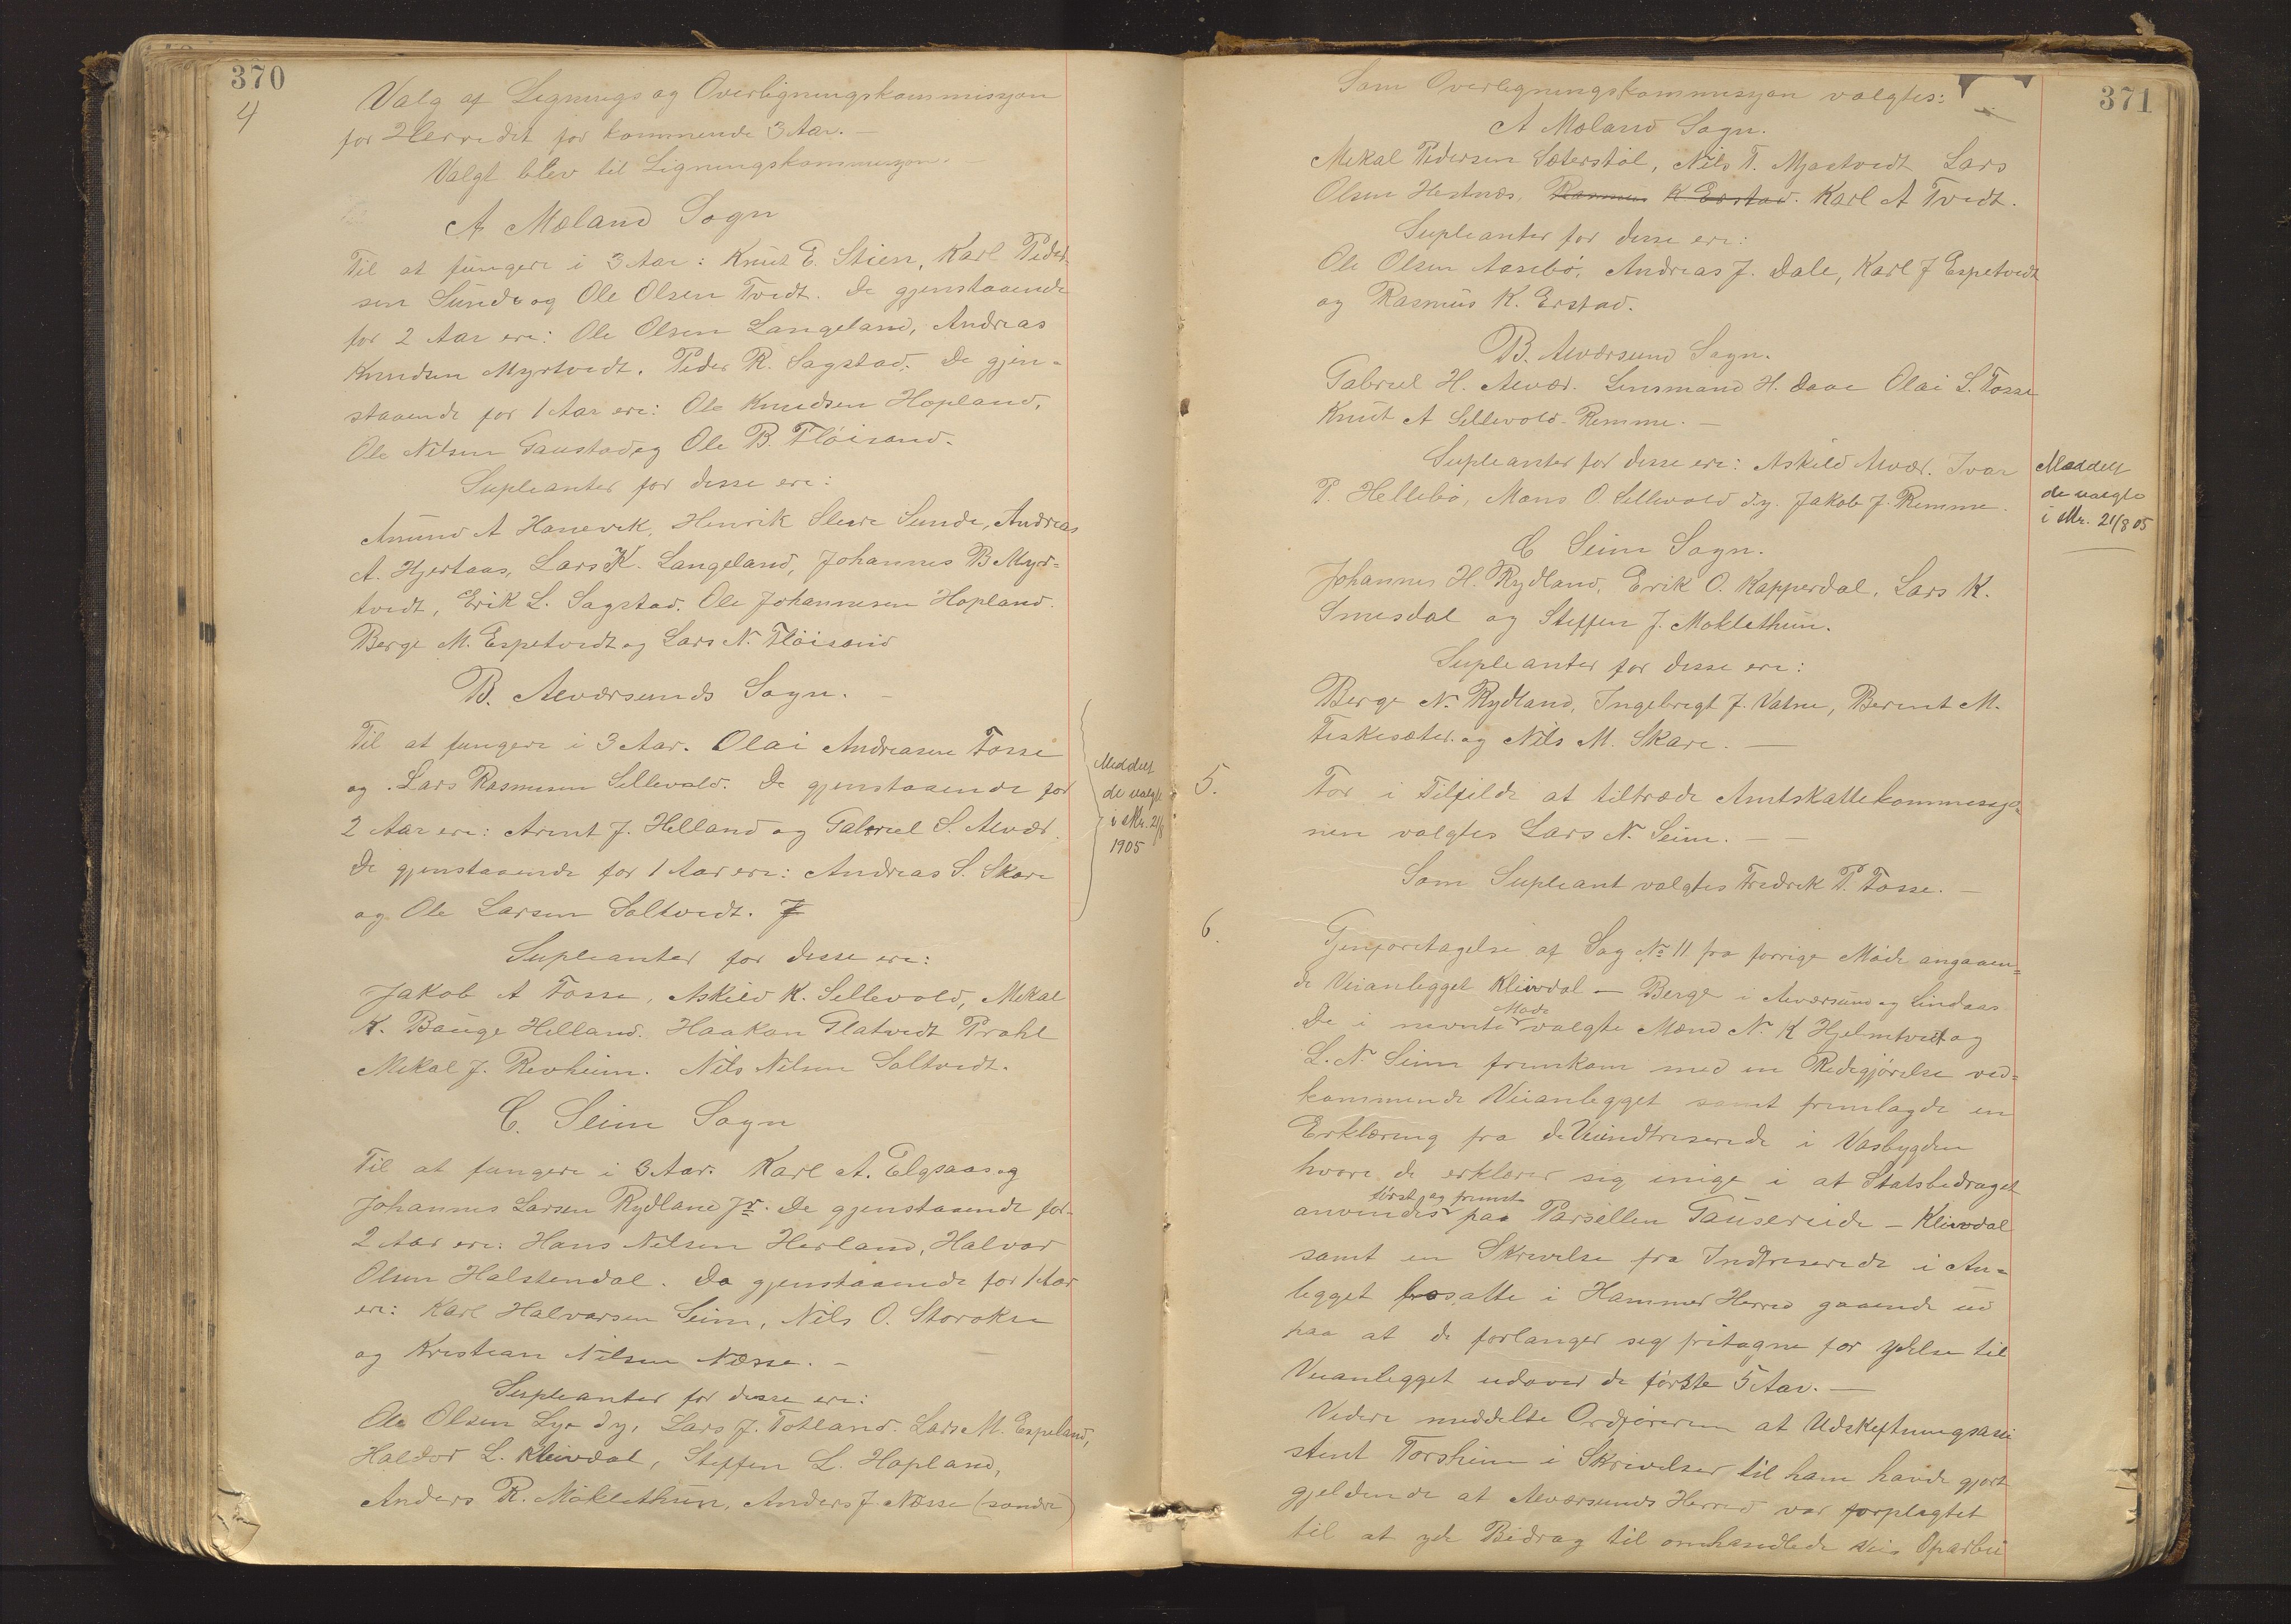 370
4
Valg af Lignings og Overligningskommissjon
for Herredet for kommende 3 Aar. —
Valgt blev til Ligningskommissjon.
A Mæland Sogn
Til at fungere i 3 Aar: Knut E. Stien, Karl Peder-
sen Sunde og Ole Olsen Tvedt. De gjenstaaende
for 2 Aar ere: Ole Olsen Langeland, Andreas
Knudsen Myrtvedt. Peder R. Sagstad. De gjen-
staaende for 1 Aar ere: Ole Knudsen Hopland,
Ole Nilsen Gaustad og Ole B. Fløisand.
Supleanter for disse ere:
Amund A Hanevik, Henrik Sunde, Andreas
A. Hjertaas, Lars K. Langeland, Johannes B Myr-
tvedt, Erik L. Sagstad. Ole Johannesen Hopland.
Berge M. Espetvedt og Lars N. Fløisand
B. Alværsunds Sogn. —
Til at fungere i 3 Aar. Olai Andreasen Fosse
og Lars Rasmusen Sellevold. De gjenstaaende for
2 Aar ere: Arent J. Helland og Gabriel S. Alvær.
De gjenstaaende for 1 Aar ere: Andreas S. Skare
og Ole Larsen Soltvedt.
Meddelt
de valgte
i Skr. 21/8
1905
Supleanter for disse ere:
Jakob A Fosse, Askild K. Sellevold, Mikal
K. Bauge Helland. Haakon Flatvedt Prahl
Mikal J. Revheim. Nils Nilsen Soltvedt.
C. Seim Sogn
Til at fungere i 3 Aar: Karl A. Elgsaas og
Johannes Larsen Rydland Jr. De gjenstaaende for
2 Aar ere: Hans Nilsen Herland, Halvor
Olsen Halstendal. De gjenstaaende for 1 Aar
ere: Karl Halvorsen Seim, Nils O. Storoken
og Kristian Nilsen Næsse. —
Supleanter for disse ere:
Ole Olsen Lye dy, Lars J. Totland. Lars M. Espeland,
Haldor L. Kleivdal, Steffen L. Hopland,
Anders R. Moklethun, Anders J. Næsse (søndre)
371
Som Overligningskommissjon valgtes:
A Mæland Sogn.
Mikal Pedersen Sæterstøl, Nils T. Mjøstvedt Lars
Olsen Hestnæs, Rasmus K Erstad. Karl A Tvedt.
Supleanter for disse ere:
Ole Olsen Aasebø, Andreas J. Dale, Karl J Espetvedt
og Rasmus K. Erstad.
B. Alværsund Sogn.
Gabriel H. Alvær. Lensmand H. Daae Olai L. Fosse
Knut A Sellevold. Remme. —
Supleanter for disse ere: Askild Alvær. Ivar
P. Hellebø, Mons O Sellevold dy. Jakob J. Remme.
Meddelt
de valgte
i Skr. 21/8 05
C Seim Sogn.
Johannes H. Rydland, Erik O. Kapperdal, Lars K.
Smesdal og Steffen J. Moklethun.
Supleanter for disse ere:
Berge N. Rydland, Ingebrigt J. Vatne, Berent M.
Fiskesæter og Nils M. Skare. —
5.
For i Tilfælde at tiltræde Amtskattekommissjo-
nen valgtes Lars N. Seim. — —
Som Supleant valgtes Fredrik P. Fosse. —
6.
Gjenforetagelse af Sag No 11 fra forrige Møde angaaen-
de Veianlegget Kleivdal — Berge i Alværsund og Lindaas
De i nevnte Møde valgte Mænd N. K Hjelmtveit og
L. N Seim fremkom med en Redegjørelse ved-
kommende Veianlegget samt fremlagde en
Erklæring fra de Veiindtreserede i Vasbygden
hvori de erklærer sig enige i at Statsbedraget
anvendes først og fremst paa Parsellen Tausereide — Kleivdal
samt en Skrivelse fra Indtreserede i An-
legget bosatte i Hammer Herred gaaende ud
paa at de forlanger sig fritagne for Ydelse til
Veianlegget udover de første 5 Aar. —
Videre meddelte Ordføreren at Udskiftningsassi
stent Forsheim i Skrivelser til ham havde gjort
gjeldende at Alværsunds Herred var forpligtet
til at yde Bidrag til omhandlede Veis Oparbei